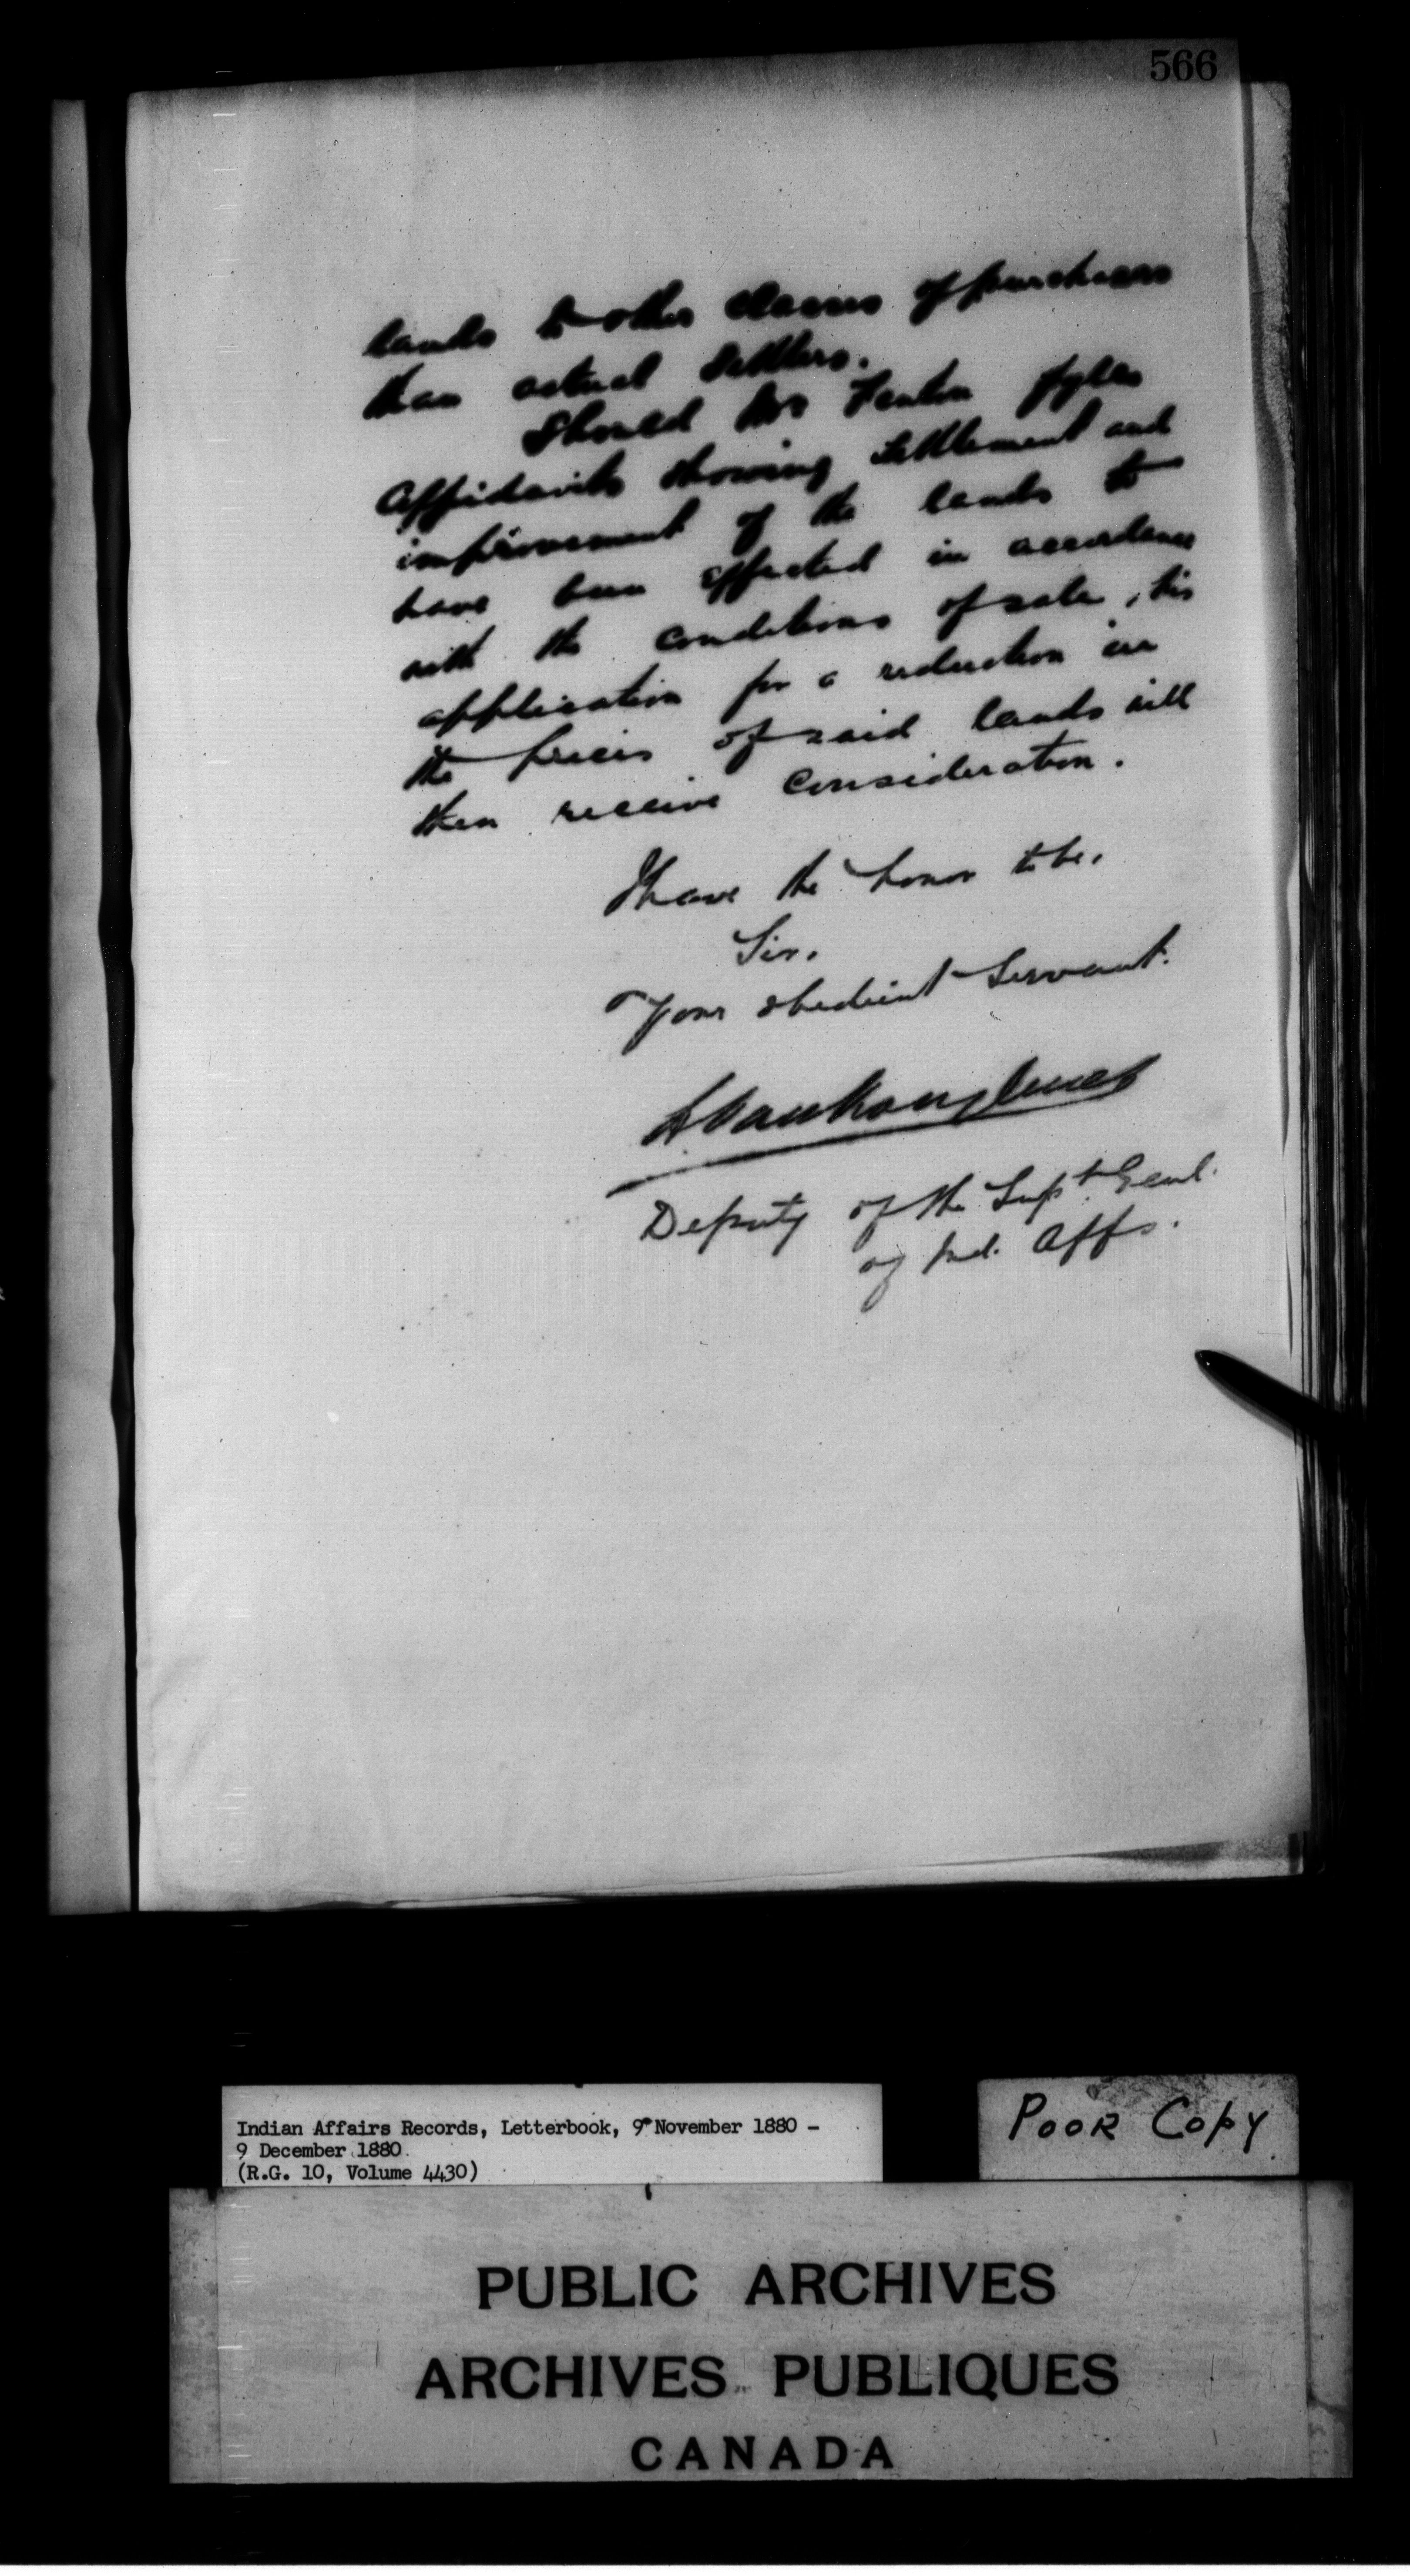 566
lands to other classes of purchasers
than actual settlers.
Should Mr Fenton fyle
affidavits showing settlement and
improvement of the lands to
have been effected in accordance
with the conditions of sale, his
application for a reduction in
the prices of said lands will
then receive consideration.
I have the honor to be.
Sir.
Your obedient Servant.
L Vankoughnet
Deputy of the Supt. Genl.
of Ind. Affs.
Indian Affairs Records, Letterbook, 9 November 1880 -
9 December 1880
(R.G. 10, Volume 4430)
POOR COPY
PUBLIC ARCHIVES
ARCHIVES PUBLIQUES
CANADA